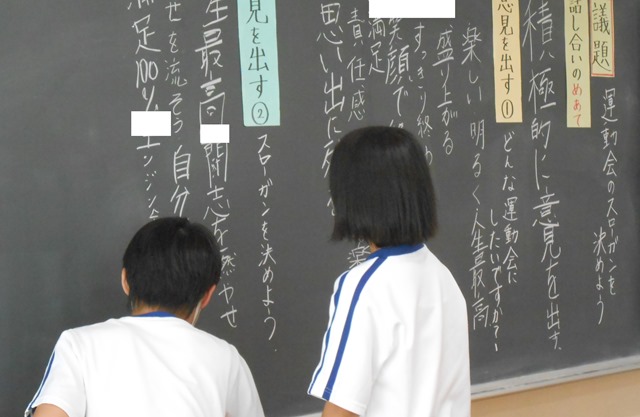 議題
運動会のスローガンを
決めよう
話し合いのめあて
積極的に意見を出す。
意見を出す①
どんな運動会に
したいですか?
楽しい 明るく 人生最高
盛り上がる
すっきり終わ
笑顔で
満足
責任感
思い出に
見を出す②
スローガンを決めよう
生最高 闘志を燃やせ
せを流そう 自分
満足100% エンジン全